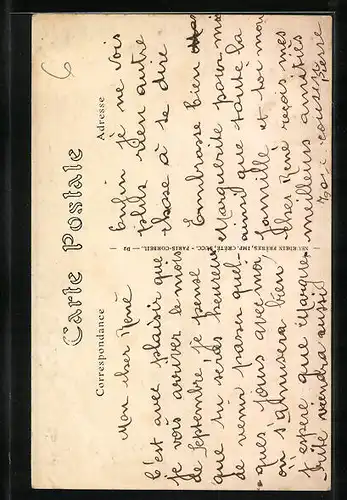 Carte Postale
Correspondance
Adresse
Mon cher René
C'est avec plaisir que
je vois arriver le mois
de Septembre je pense
que tu seras heureux
de venir passer quel-
ques jours avec moi,
on s'amusera bien,
J'espère que Margue-
rite viendra aussi
NEURDEIN FRÈRES, IMP. CRÉTÉ, SUCC. - PARIS-CORBEIL.
Enfin je ne vois
plus rien autre
chose à te dire
Embrasse bien
Marguerite pour moi
ainsi que toute la
famille et toi mon
cher René reçois mes
meilleurs amitiés
Ton cousin Pierre